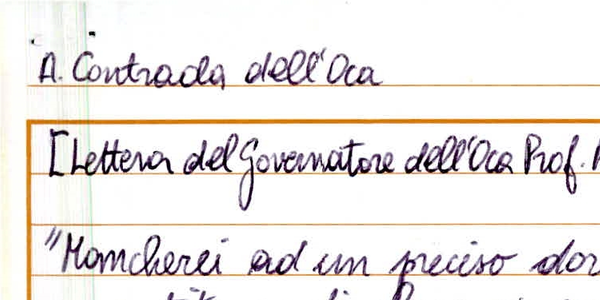 A. Contrada dell'Oca
[Lettera del Governatore dell'Oca Prof.
"Mancherei ad un preciso